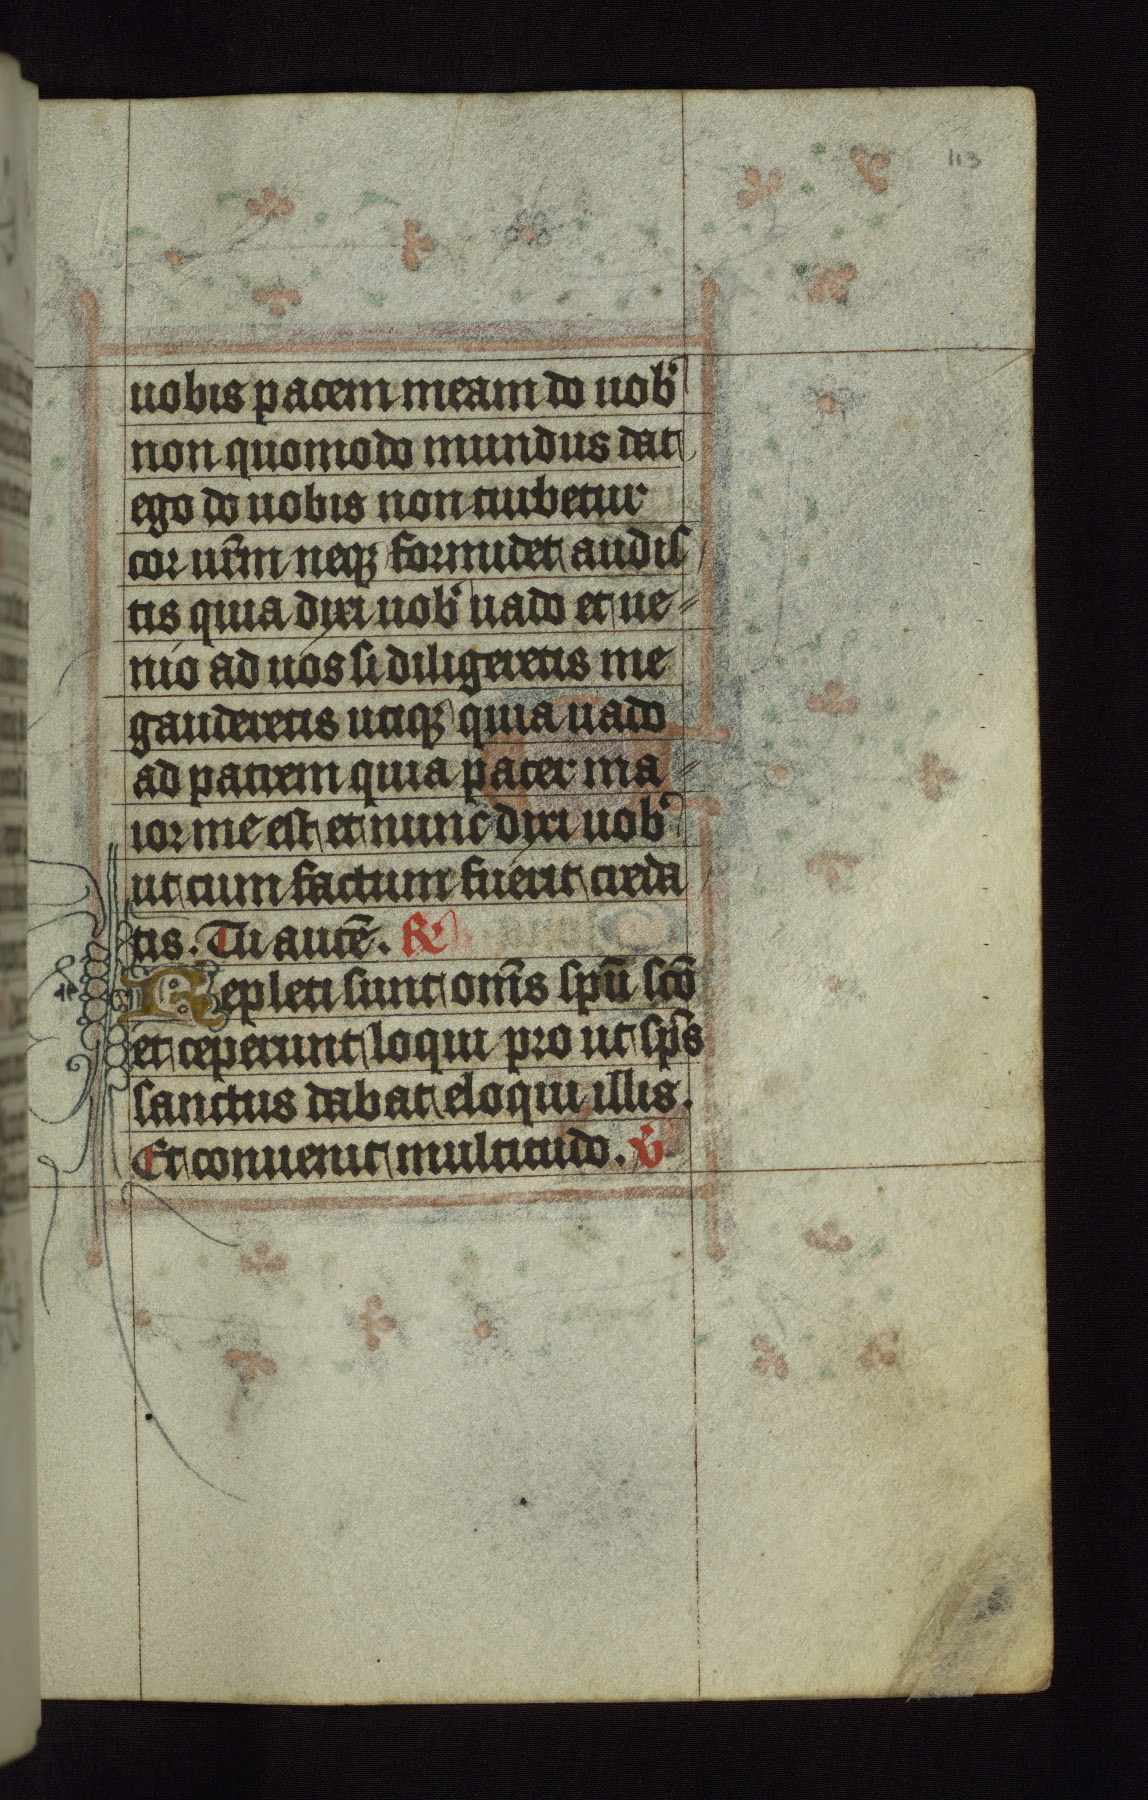 113
uobis pacem meam do uob᷒
non quomodo mundus dat
ego do uobis non turbetur
cor ur̄m neqꝫ formidet audis
tis quia dixi uob᷒ uado et ue⸗
nio ad uos si diligeretis me
gauderetis utiqꝫ quia uado
ad patrem quia pater ma⸗
ior me est et nunc dixi uob᷒
ut cum factum fuerit creda
tis. Tu autē. ℟
Repleti sunt om̄s spū scō
et ceperunt loqui pro ut sp̄s
sanctus dabat eloqui illis.
Et conuenit multitudo. v̇